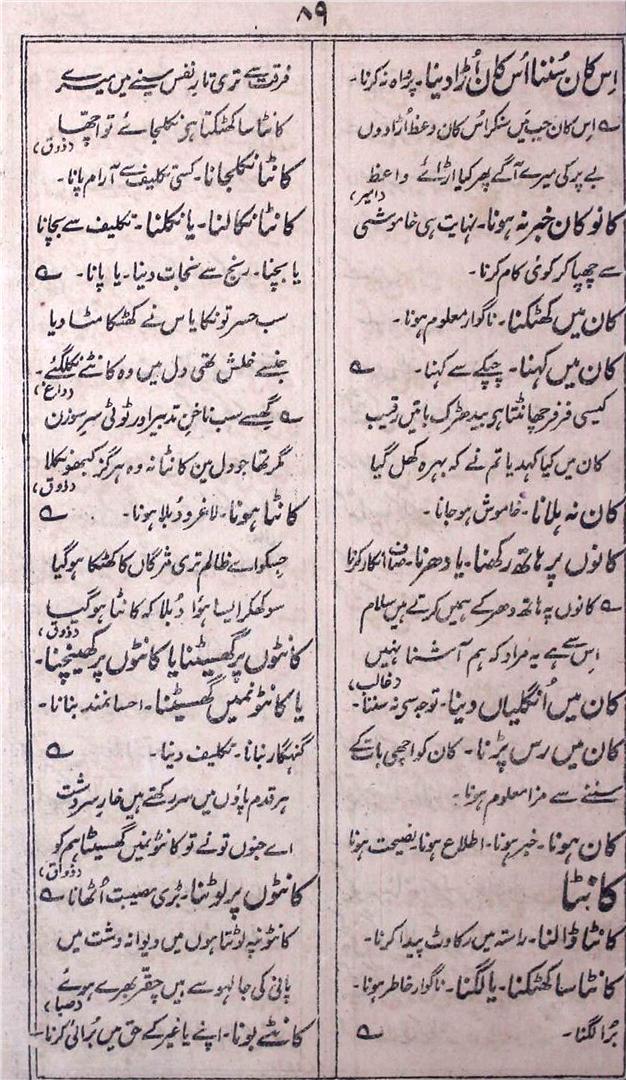 ۸۹
اِس کان سُننا اُس کان اُڑا دینا۔ پرواہ نہ کرنا۔
؎ اس کان حبیبؔ میں سنکر اُس کان وعظ اُڑا دوں
بے پر کی میرے آگے پھر کیا اڑائے واعظ
(امیر)
کانو کان خبر نہ ہونا۔ نہایت ہی خاموشی
سے چھپا کر کوئی کام کرنا۔
کان میں کھٹکنا۔ ناگوار معلوم ہونا۔
کان میں کہنا۔ چپکے سے کہنا۔ ؎
کیسی فرفر چھانٹتا ہو بیدھڑک باتیں رقیب
کان میں کیا کہدیا تم نے کہ بہرہ کھل گیا
کان نہ ہلانا۔ خاموش ہو جانا۔
کانوں پر ہاتھ رکھنا۔ یا دھرنا۔ صاف انکار کرنا
؎ کانوں پہ ہاتھ دھر کے ہمیں کرتے ہیں سلام
اس سے ہے یہ مراد کہ ہم آشنا نہیں
(غالب)
کان میں اُنگلیاں دینا۔ توجہ سی نہ سننا۔
کان میں رس پڑنا۔ کان کو اچھی بات کے
سننے سے مزا معلوم ہونا۔
کان ہونا۔ خبر ہونا۔ اطلاع ہونا۔ نصیحت ہونا
کانٹا
کانٹا ڈالنا۔ راستہ میں رکاوٹ پیدا کرنا۔
کانٹا سا کھٹکنا۔ یا لگنا۔ ناگوار خاطر ہونا۔
بُرا لگنا۔ ؎
فرقت سے تری تارِ نفس سینے میں میرے
کانٹا سا کھٹکتا ہو نکلجائے تو اچھا
(ذوق)
کانٹا نکلجانا۔ کسی تکلیف سے آرام پانا۔
کانٹا نکالنا۔ یا نکلنا۔ تکلیف سے بچانا
یا بچنا۔ رنج سے نجات دینا۔ یا پانا۔ ؎
سب حسرتونکا یاس نے کھٹکا مٹا دیا
جنسے خلش تھی دل میں وہ کانٹے نکلگئے۔
(داغ)
؎ گھسے سب ناخنِ تدبیر اور ٹوٹی سرِ سوزن
مگر تھا جو دل مین کانٹا نہ وہ ہرگز کبھو نکلا
(ذوق)
کانٹا ہونا۔ لاغر و دُبلا ہونا۔ ؎
جسکو اے ظالم تری مژگاں کا کھٹکا ہو گیا
سوکھکر ایسا ہؤا دُبلا کہ کانٹا ہو گیا
(ذوق)
کانٹوں پر گھسیٹنا یا کانٹوں پر کھینچنا۔
یا کانٹونمیں گھسیٹنا۔ احسانمند بنانا۔
گنہگار بنانا۔ تکلیف دینا۔ ؎
ہر قدم پاؤں میں سر رکھتے ہیں خار سر دشت
اے جنوں تونے تو کانٹونمیں گھسیٹا ہم کو
(ذوق)
کانٹوں پر لوٹنا۔ بڑی مصیبت اُٹھانا ؎
کانٹونپہ لوٹتا ہوں میں دیوانہ دشت میں
پانی کی جا لہو سے ہیں چقّر بھرے ہوئے
(صبا)
کانٹے بونا۔ اپنے یا غیر کے حق میں بُرائی کرنا۔